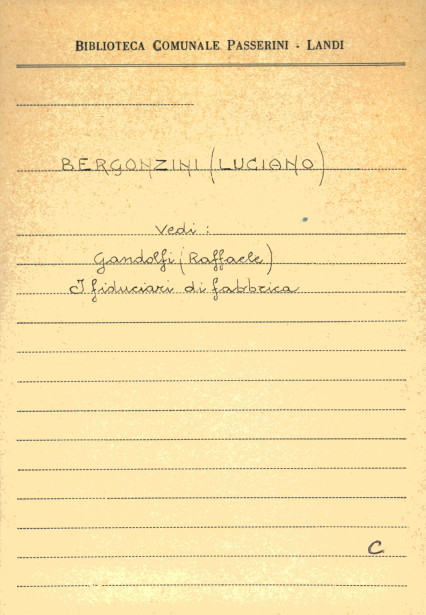 BIBLIOTECA COMUNALE PASSERINI - LANDI
BERGONZINI (LUCIANO)
Vedi :
Gandolfi (Raffaele)
I fiduciari di fabbrica
C